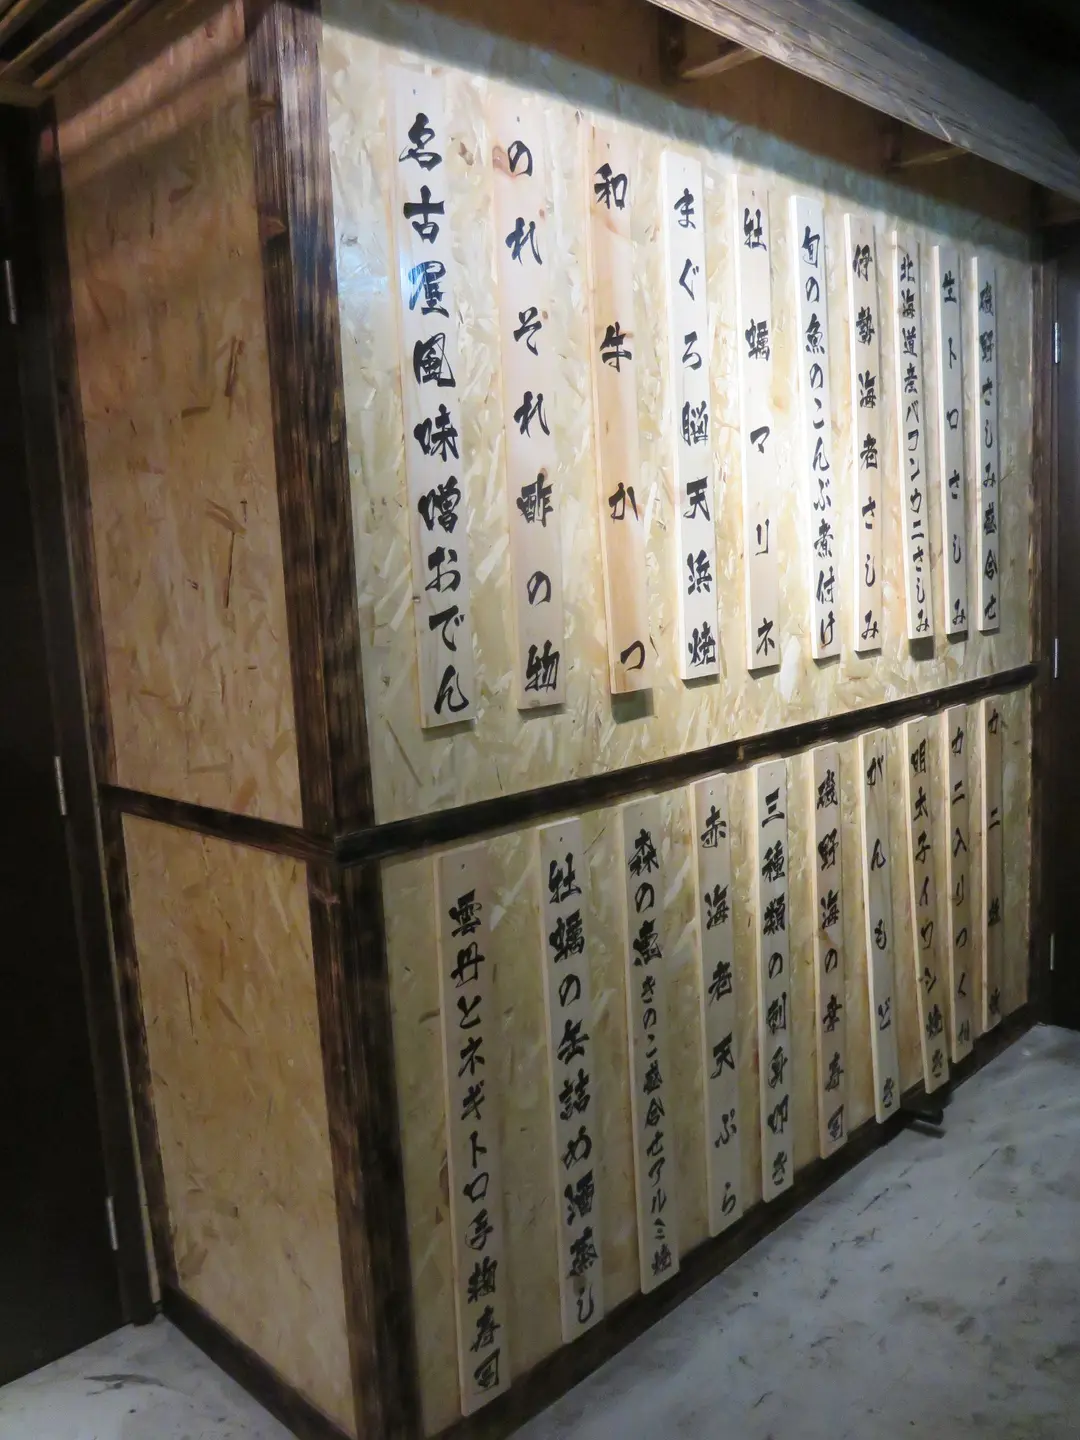 磯野さしみ盛合せ
生トロさしみ
北海道産バフンウニさしみ
伊勢海老さしみ
旬の魚のこんぶ煮付け
牡蠣マリネ
まぐろ脳天浜焼
和牛かつ
のれそれ酢の物
名古屋風味噌おでん
カニ
カニ入りつくね
明太子イワシ焼き
がんもどき
磯野海の幸寿司
三種類の刺身叩き
赤海老天ぷら
森の恵きのこ盛合せアルミ焼
牡蠣の缶詰め酒蒸し
雲丹とネギトロ手鞠寿司